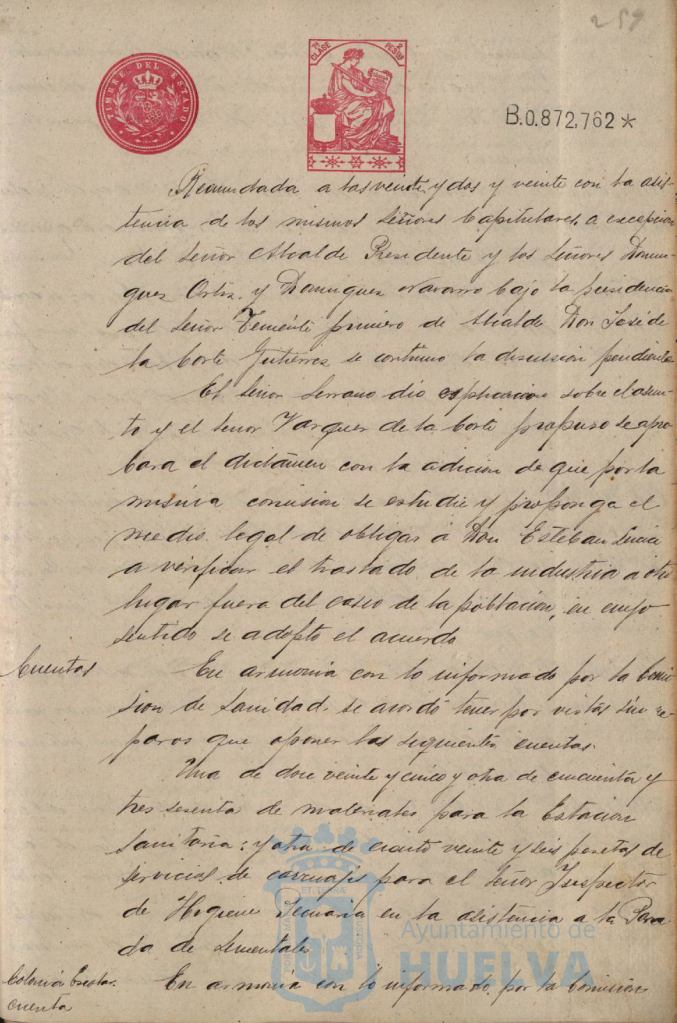 259
TIMBRE DEL ESTADO
7ª CLASE 2 PESETAS
B.0.872,762*
Reanudada a las veinte y dos y veinte con la asis-
tencia de los mismos Señores Capitulares, a excepcion
del Señor Alcalde Presidente y los Señores Domin-
guez Ortiz y Dominguez Navarro bajo la presidencia
del Señor Teniente primero de Alcalde Don José de
la Corte Gutierrez se continuo la discusion pendiente
El Señor Serrano dio esplicacion sobre el asun-
to y el Señor Vazquez de la Corte propuso se apro-
bara el dictámen con la adicion de que por la
misma comision se estudie y proponga el
medio legal de obligar á Don Esteban
a verificar el traslado de la industria a otro
lugar fuera del casco de la poblacion, en cuyo
sentido se adopto el acuerdo
Cuentas
En armonia con lo informado por la Comi-
sion de Sanidad se acordó tener por vistas sin re-
paros que oponer las siguientes cuentas.
Una de doce veinte y cinco y otra de cincuenta y
tres sesenta de materiales para la Estacion
Sanitaria: y otra de ciento veinte y seis pesetas de
servicios de carruajes para el Señor Inspector
de Higiene Pecuaria en la asistencia a la Para-
da de Sementales
Colonia Escolar.
cuenta
En armonia con lo informado por la Comision
Ayuntamiento de
HUELVA